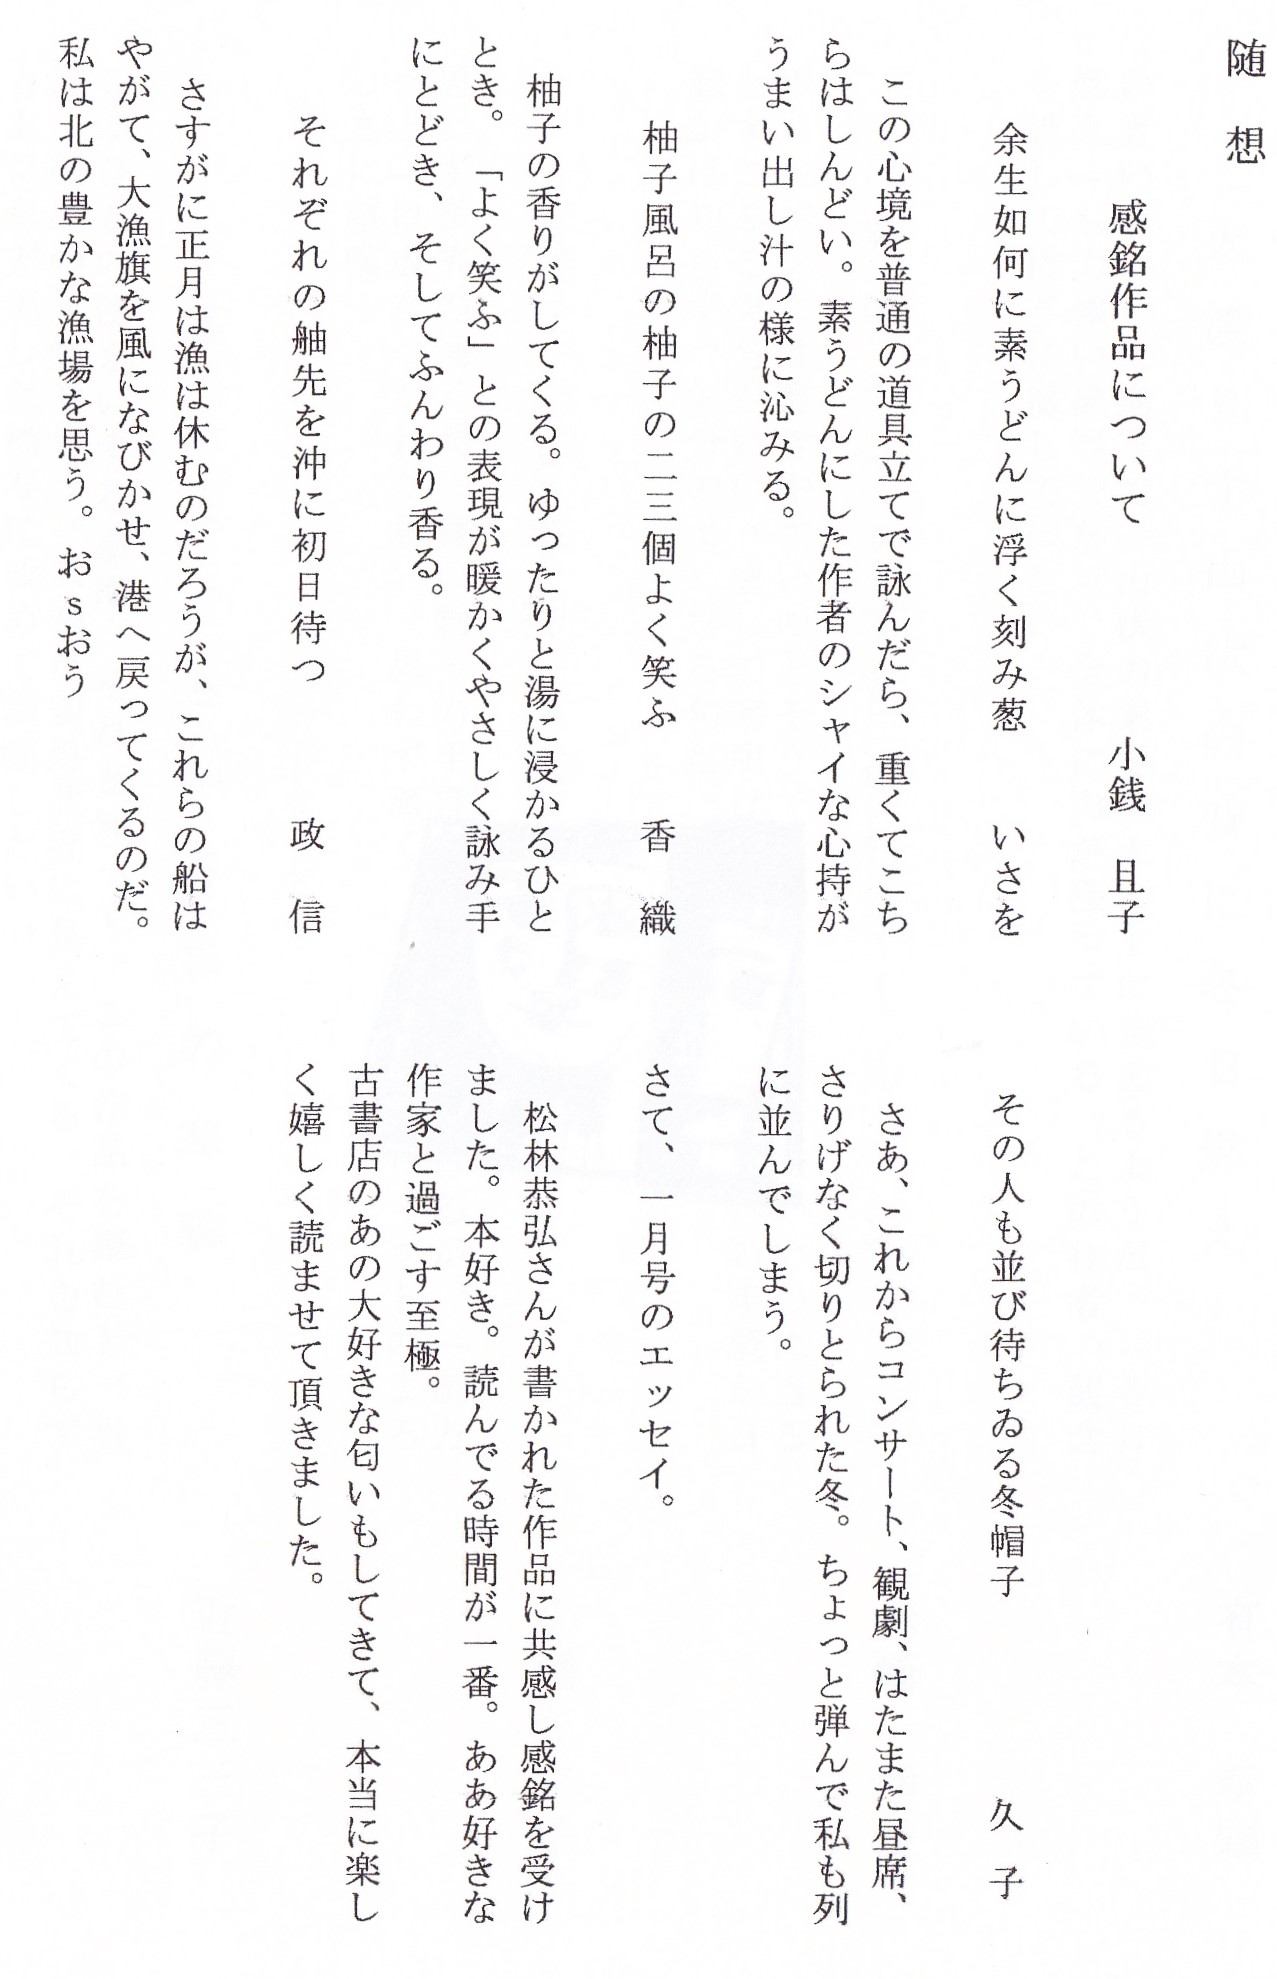 随　想
感銘作品について　　　　　小銭　且子
余生如何に素うどんに浮く刻み葱　　いさを
この心境を普通の道具立てで詠んだら、重くてこち
らはしんどい。素うどんにした作者のシャイな心持が
うまい出し汁の様に沁みる。
柚子風呂の柚子の二三個よく笑ふ　　香　織
柚子の香りがしてくる。ゆったりと湯に浸かるひと
とき。「よく笑ふ」との表現が暖かくやさしく詠み手
にとどき、そしてふんわり香る。
それぞれの舳先を沖に初日待つ　　　政　信
さすがに正月は漁は休むのだろうが、これらの船は
やがて、大漁旗を風になびかせ、港へ戻ってくるのだ。
私は北の豊かな漁場を思う。おｓおう
その人も並び待ちゐる冬帽子　　　　久　子
さあ、これからコンサート、観劇、はたまた昼席、
さりげなく切りとられた冬。ちょっと弾んで私も列
に並んでしまう。
さて、一月号のエッセイ。
松林恭弘さんが書かれた作品に共感し感銘を受け
ました。本好き。読んでる時間が一番。ああ好きな
作家と過ごす至極。
古書店のあの大好きな匂いもしてきて、本当に楽し
く嬉しく読ませて頂きました。